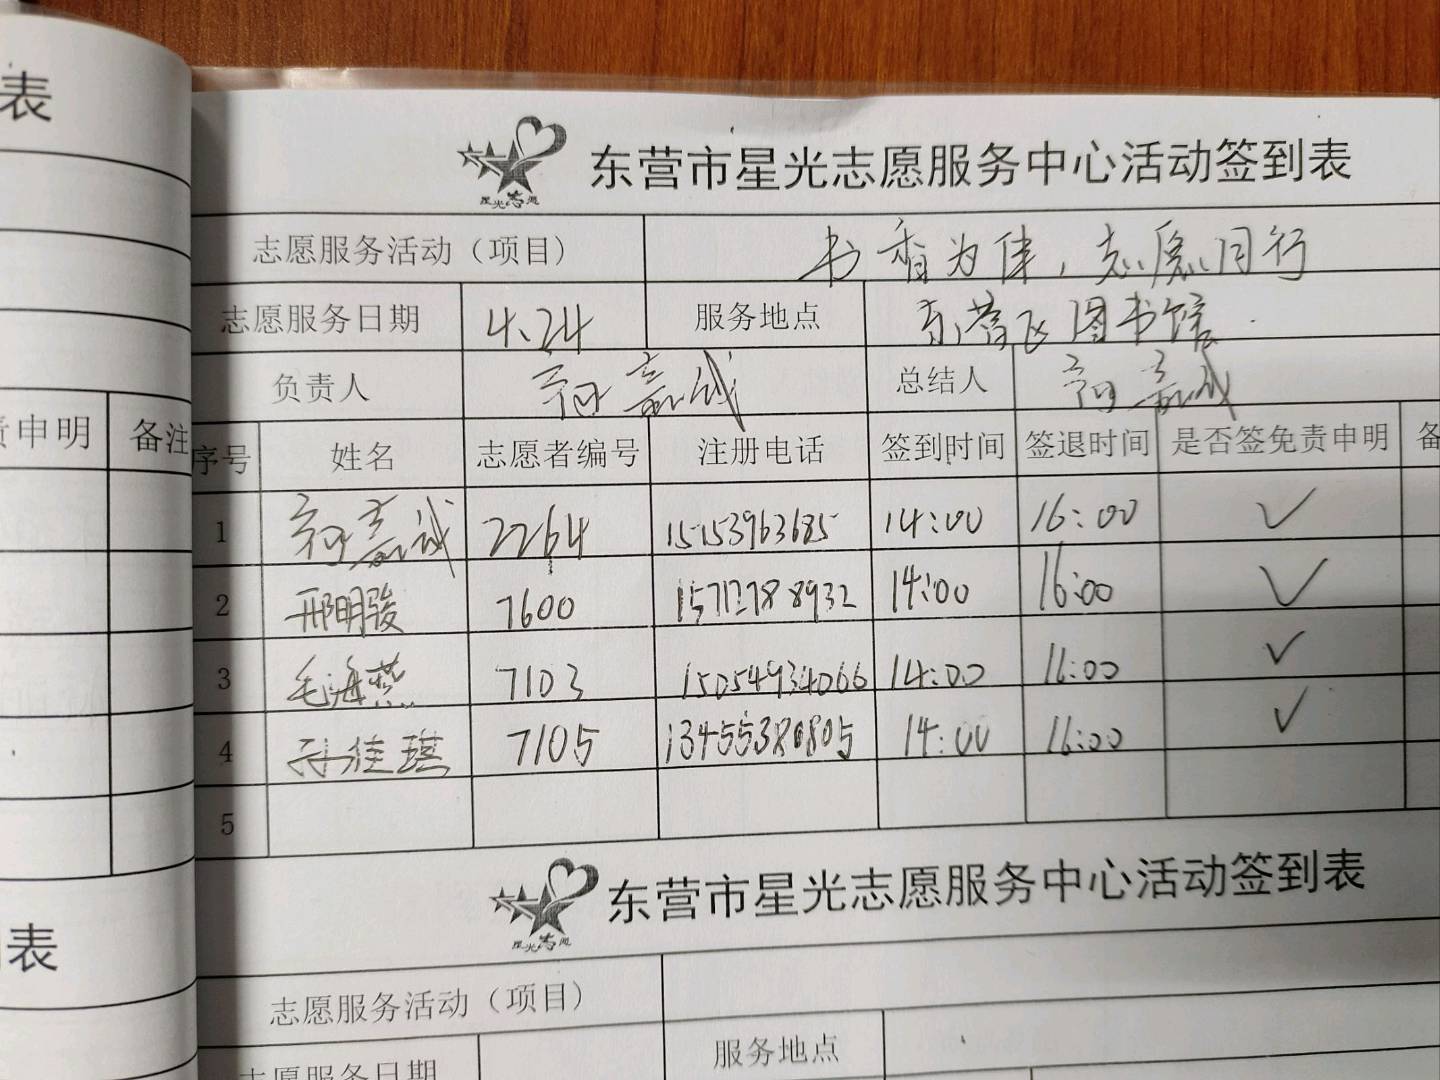 表
星光志愿
东营市星光志愿服务中心活动签到表
志愿服务活动（项目） 书香为伴，志愿同行
志愿服务日期 4.24 服务地点 东营区图书馆
负责人 嘉诚 总结人 嘉诚
责申明 备注 序号 姓名 志愿者编号 注册电话 签到时间 签退时间 是否签免责申明 备
1 嘉诚 2264 15153963685 14:00 16:00 ✓
2 邢明骏 7600 14:00 16:00 ✓
3 毛海燕 7103 15054934066 14:00 16:00 ✓
4 孙佳琪 7105 13455380805 14:00 16:00 ✓
5
星光志愿
东营市星光志愿服务中心活动签到表
表
志愿服务活动（项目）
志愿服务日期 服务地点